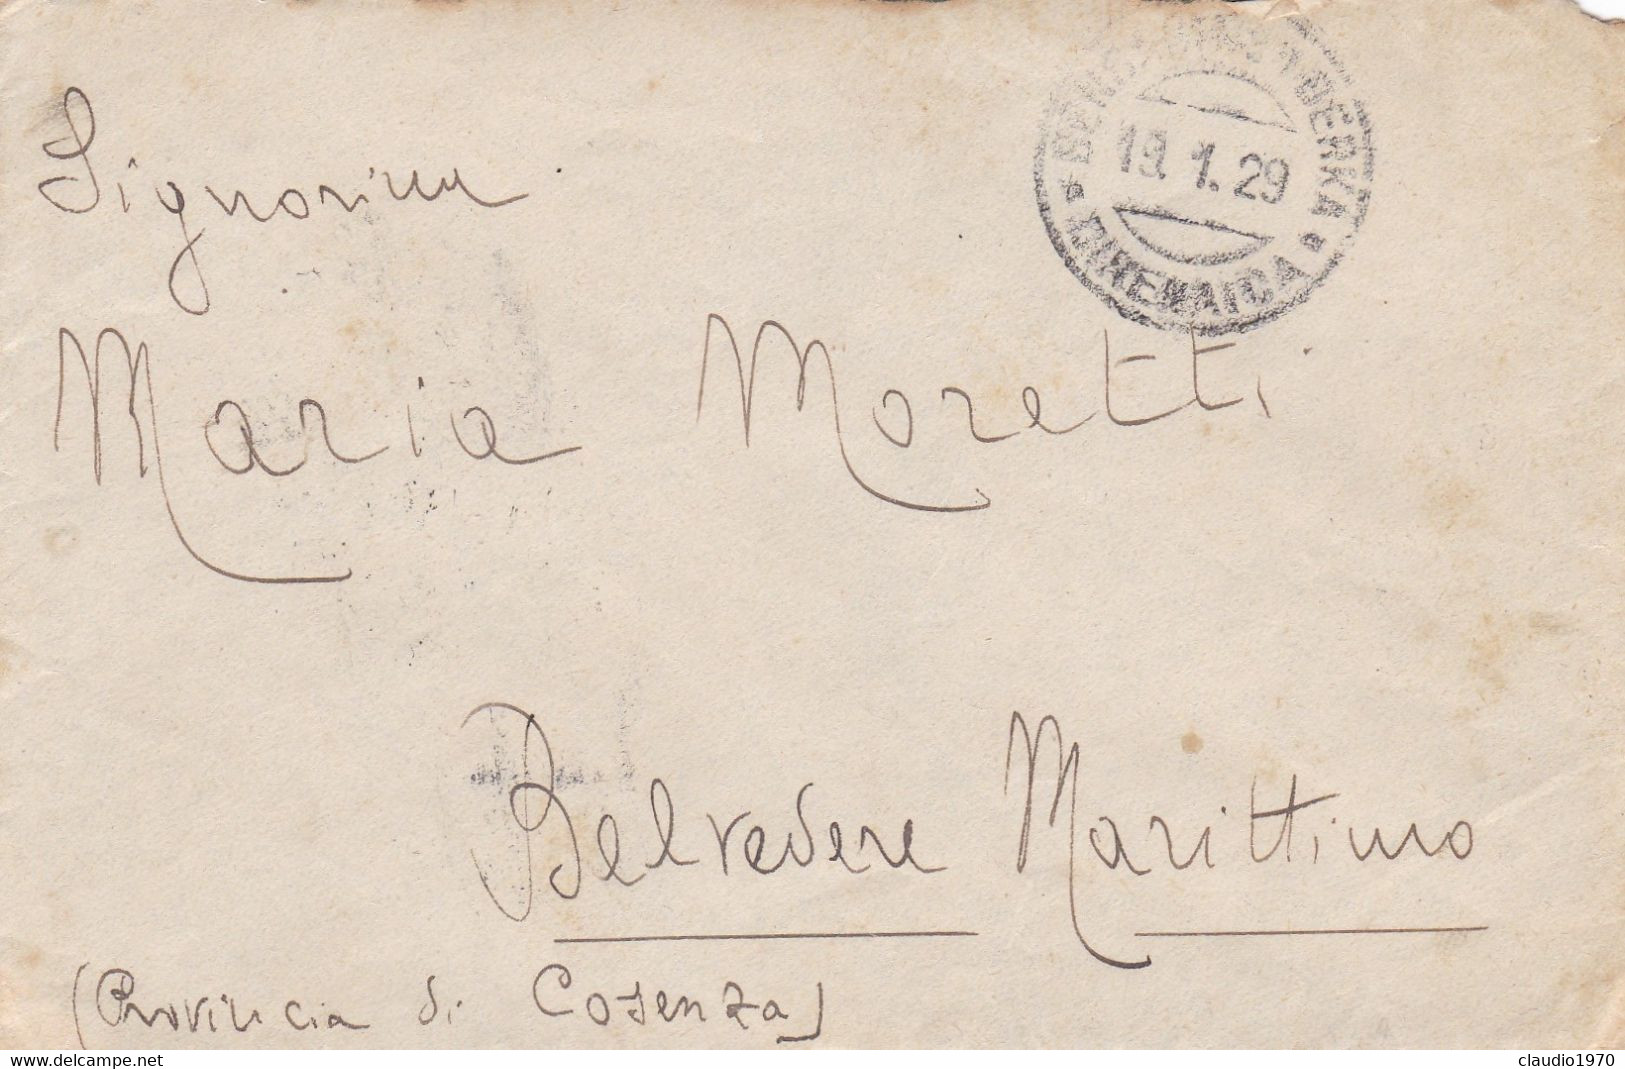 BERKA
19.1.29
CIRENAICA
Signorina
Maria Moretti
Belvedere Marittimo
(Provincia di Cosenza)
delcampe.net
claudio1970